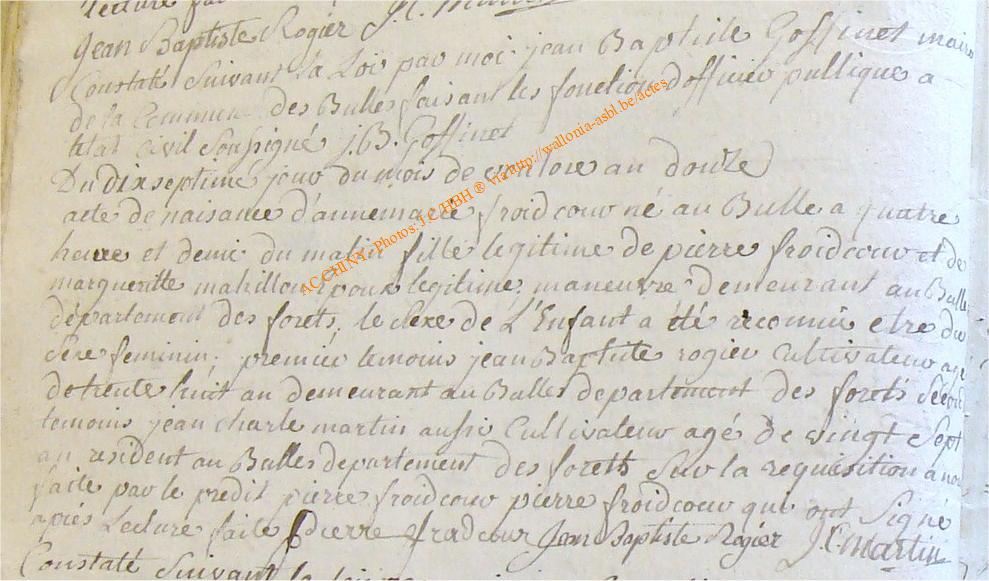 lecture fai
J.C. Martin
Jean Baptiste Rogier
Constaté Suivant La Loi par moi jean Baptiste Goffinet maire
de la Commune des Bulles faisant les fonction d'officier publique a
letat civil Soussigné J.B. Goffinet
Du dixseptime jour du mois de ventose an douze
acte de naisance d'annemarie froidcour né au Bulle a quatre
heure et demi du matin fille legitime de pierre froidcour et de
margueritte mahillon epoux legitime, maneuvre demeurant au Bulle
département des forets, le Sexe de L'Enfant a été reconnu etre du
Sexe feminin; premier temoins jean Baptiste rogier Cultivateur agé
de trente huit an demeurant au Bulles departement des forets Second
temoins jean charle martin aussi Cultivateur agé de vingt Sept
an resident au Bulles departement des forets Sur la requisition a nous
faite par le predit pierre froidcour pierre froidcour qui ont Signé
apriés Lecture faite Pierre fradcour Jean Baptiste Rogier J.C. Martin
Constaté Suivant la
ACCHINY. Photos: J.C/HBH ® via http://wallonia-asbl.be/actes